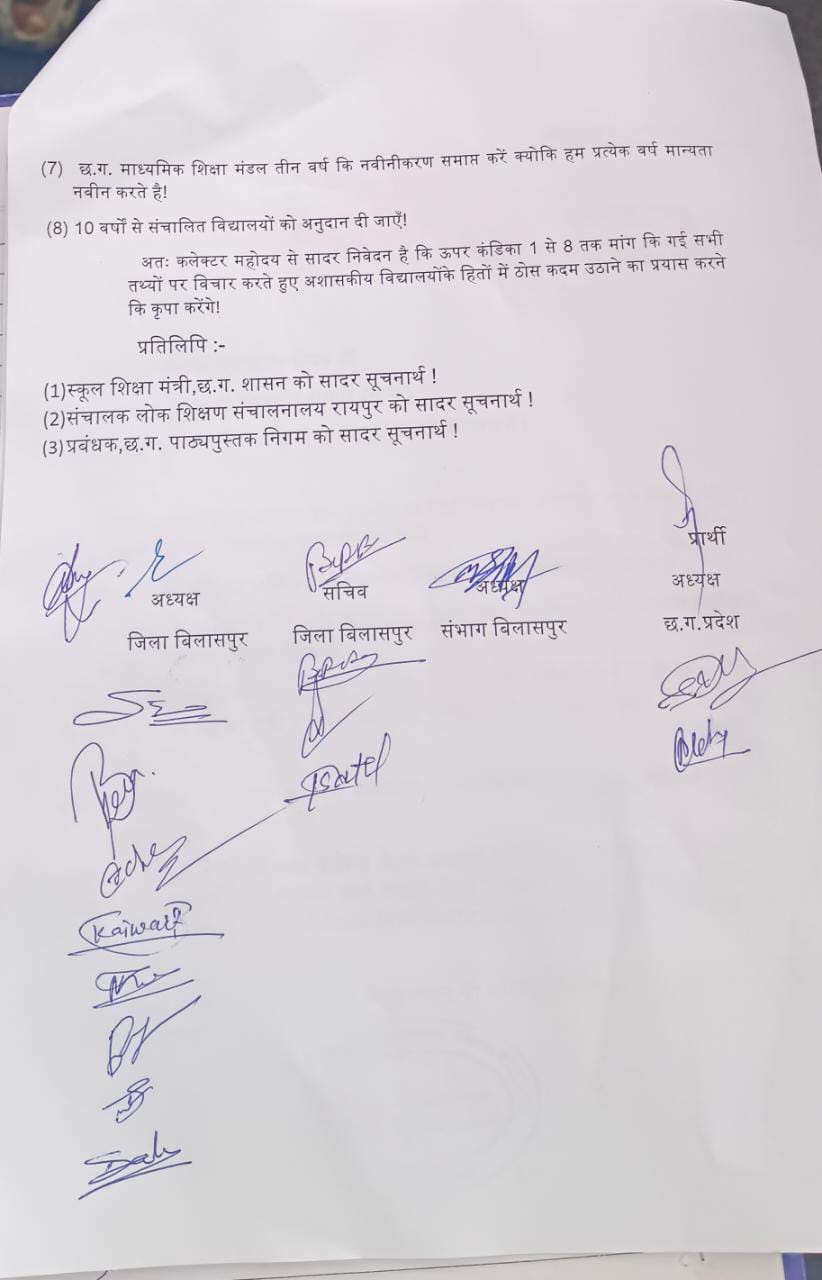 (7) छ.ग. माध्यमिक शिक्षा मंडल तीन वर्ष कि नवीनीकरण समाप्त करें क्योकि हम प्रत्येक वर्ष मान्यता
नवीन करते है!
(8) 10 वर्षो से संचालित विद्यालयों को अनुदान दी जाएँ!
अतः कलेक्टर महोदय से सादर निवेदन है कि ऊपर कंडिका 1 से 8 तक मांग कि गई सभी
तथ्यों पर विचार करते हुए अशासकीय विद्यालयोंके हितों में ठोस कदम उठाने का प्रयास करने
कि कृपा करेंगे!
प्रतिलिपि :-
(1)स्कूल शिक्षा मंत्री,छ.ग. शासन को सादर सूचनार्थ !
(2)संचालक लोक शिक्षण संचालनालय रायपुर को सादर सूचनार्थ !
(3)प्रबंधक,छ.ग. पाठ्यपुस्तक निगम को सादर सूचनार्थ !
प्रार्थी
अध्यक्ष सचिव अध्यक्ष अध्यक्ष
जिला बिलासपुर जिला बिलासपुर संभाग बिलासपुर छ.ग.प्रदेश
Kaiwart